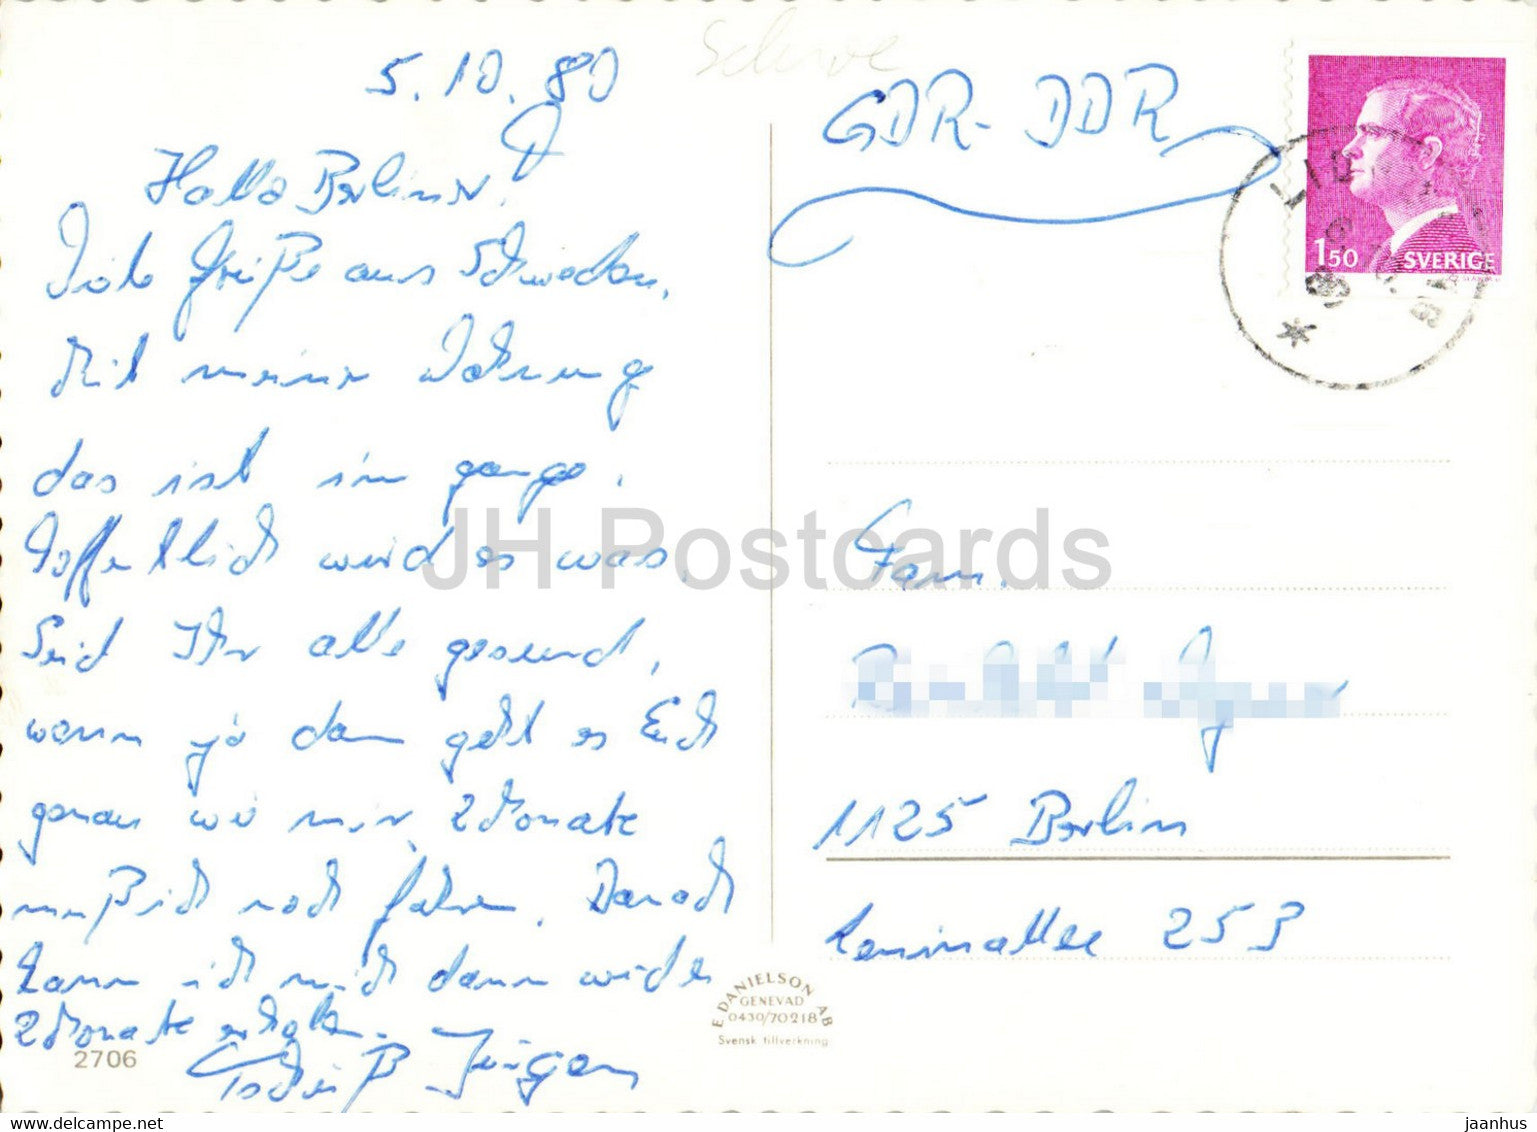 5.10.80
Hallo Berliner!
Viele Grüße aus Schweden,
Mit meiner Wohnung
das ist im gange.
Hoffentlich wird es was.
Seid Ihr alle gesund,
wenn ja dann geht es Euch
genau wie mir, 2 Monate
muß ich noch fahren. Danach
kann ich mich dann wider
2 Monate erholen.
Tschüß Jürgen
2706
GDR-DDR
1.50 SVERIGE
Fam.
1125 Berlin
Leninallee 253
E. DANIELSON AB
GENEVAD
0430/70218
Svensk tillverkning
JH Postcards
https://www.delcampe.net
jaanhus